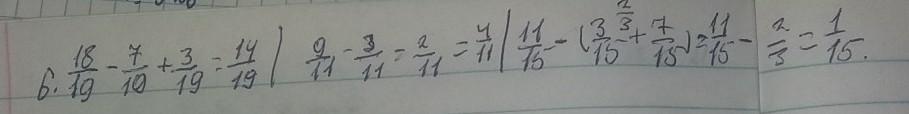 6. 18/19 - 7/19 + 3/19 = 14/19 | 9/11 - 3/11 - 2/11 = 4/11 | 11/15 - (3/15 + 7/15) = 11/15 - 2/3 = 1/15.
2/3